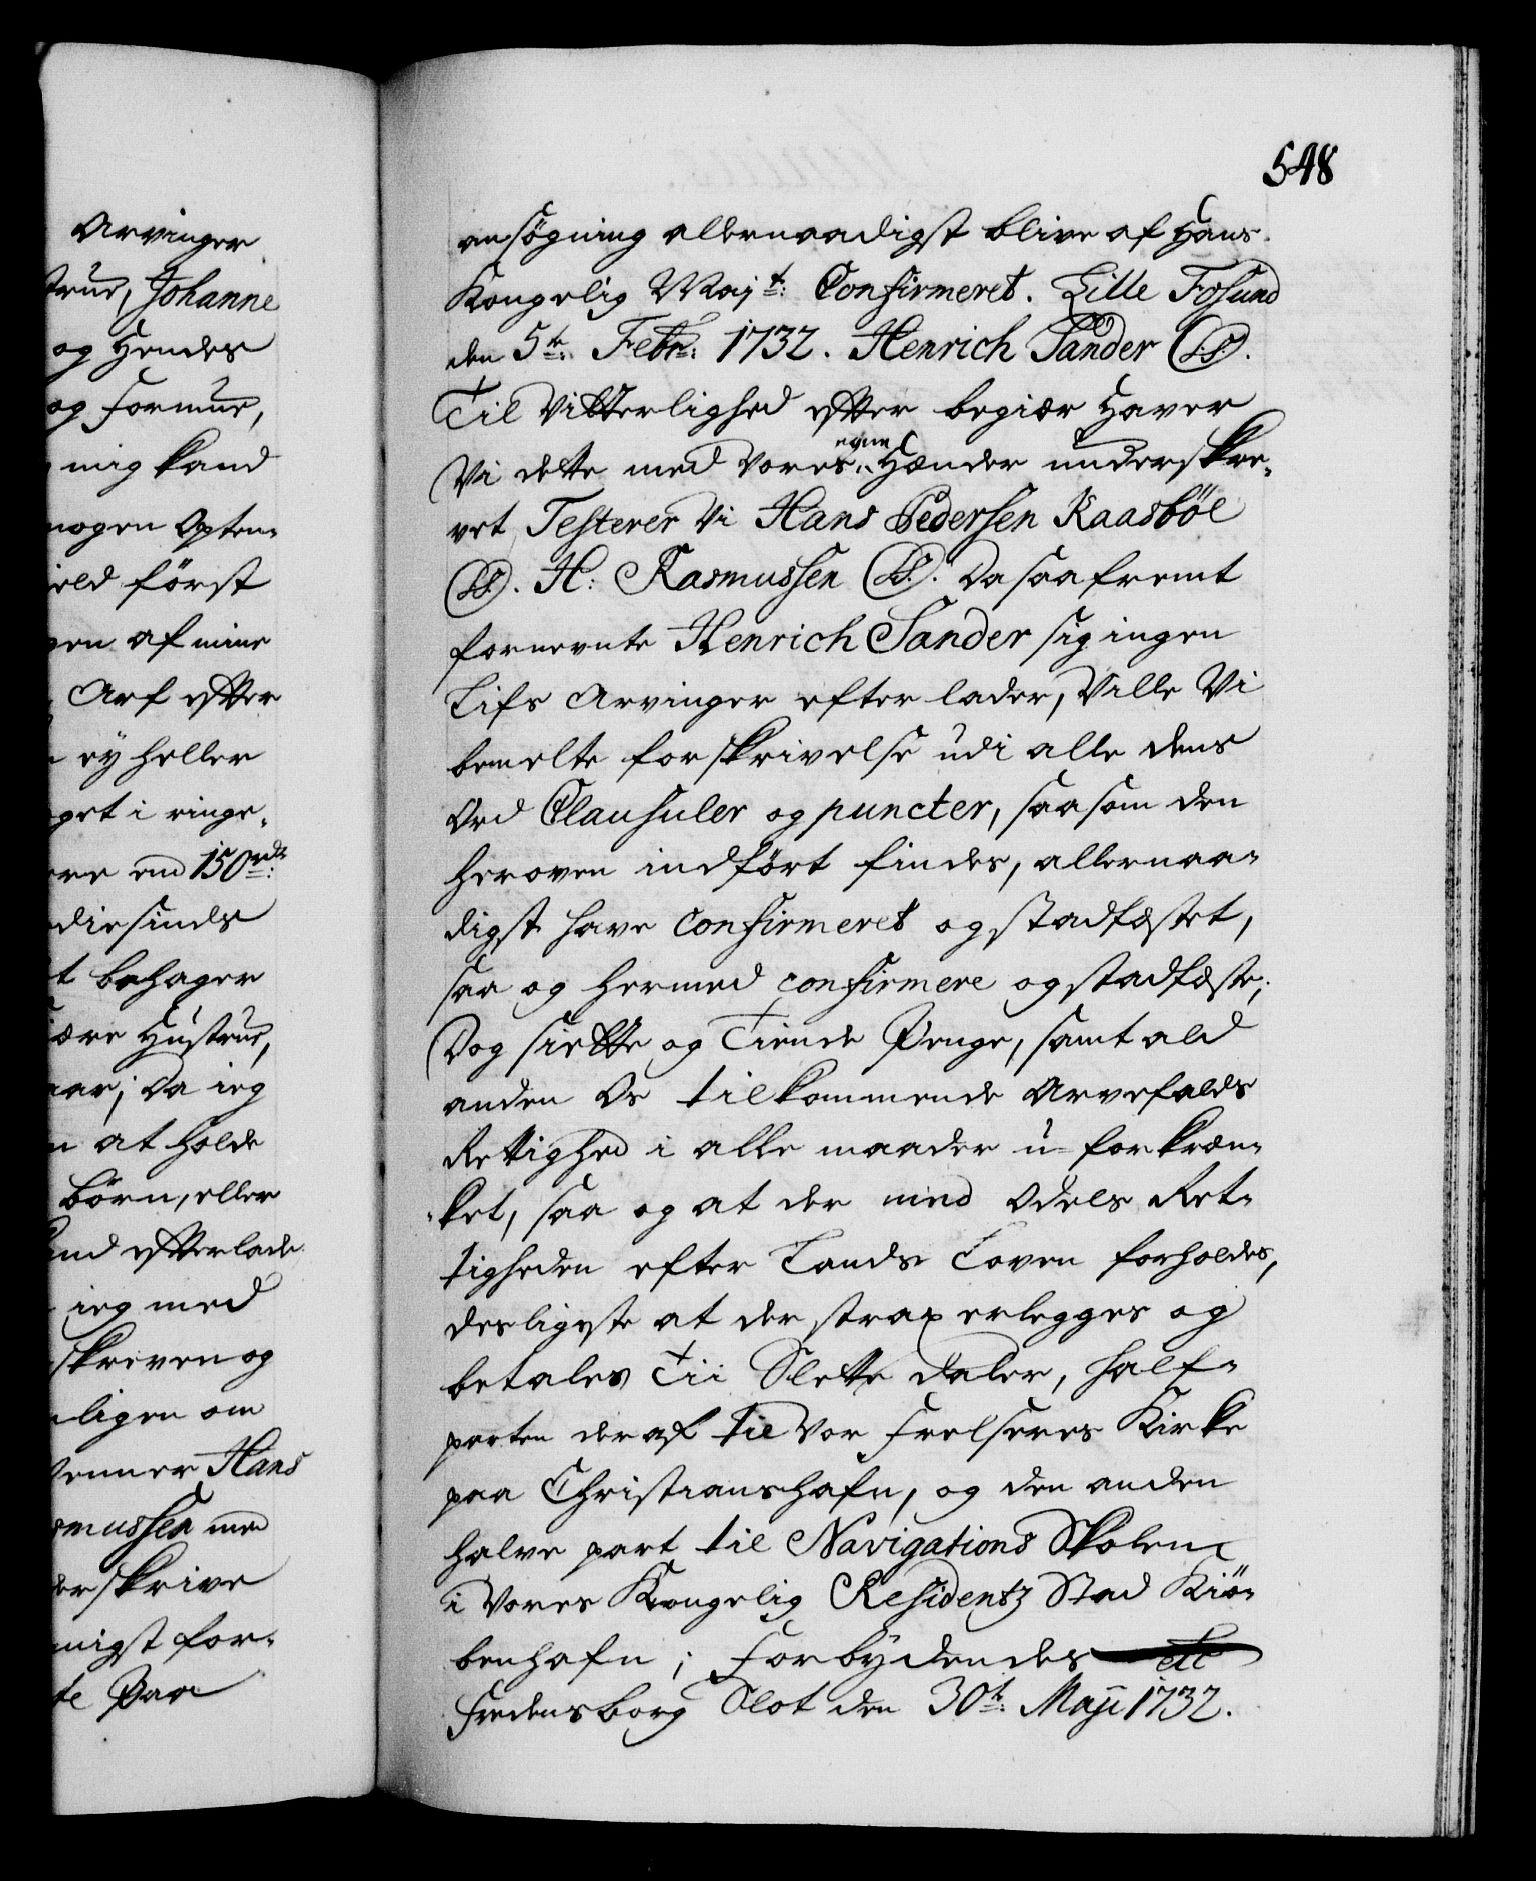 Arvinger
true, Johanne
og Hendes
og Formue,
mig kand
nogen Opten-
ield først
gen af mine
Arf efter
ey heller
get i ringe-
ere end 150 rdr:
diesinds
t behager
iære Hustrue,
aar; Da ieg
n at holde
børn, eller
and efterlade
ieg med
skreven og
ligen om
Venner Hans
smussen med
derskrive
nigst for-
te Paa
548
ansøgning allernaadigst blive af Hans
Kongelig Mayt: Confirmeret. Lille Fosund
den 5te: Febr: 1732. Henrich Sander (L.S.).
Til Vitterlighed efter begiær Haver
Vi dette med Vores egne Hænder underskre-
vet, Testerer Vi Hans Pedersen Kaasbøl
(L.S.). H: Rasmussen (L.S.). Da saafremt
fornevnte Henrich Sander sig ingen
Lifs Arvinger efter lader, Ville Vi
bemelte forskrivelse udi alle dens
Ord Clausuler og puncter, saasom den
heroven indført findes, allernaa-
digst have confirmeret og stadfæstet,
saa og hermed confirmere og stadfæste;
Dog siette og Tiende Penge, samt ald
anden Os tilkommende Arvefalds
Rettighed i alle maader u-forkræn-
-ket, saa og at der med Odels Ret-
tigheden efter Lands Loven forholdes,
desligeste at der strax erlegges og
betales Tii Slette Daler, half-
parten deraf til Vor Frelseres Kirke
paa Christianshafn, og den anden
halve part til Navigations Skolen
i Vores Kongelig Residentz Stad Kiø-
benhafn; Forbydendes etc
Fredensborg Slot den 30t: Maji 1732.